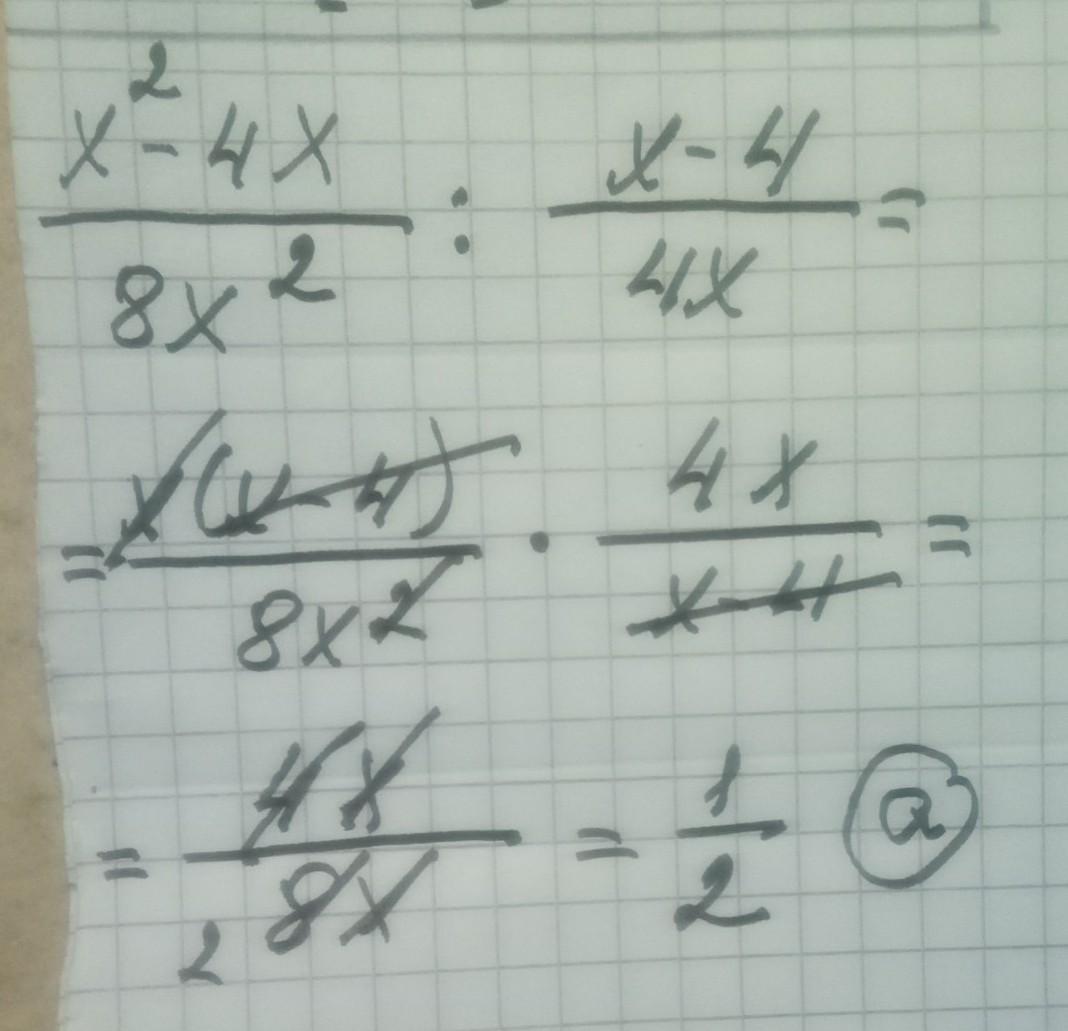 x² - 4x / 8x² : x - 4 / 4x =
= x(x - 4) / 8x² · 4x / x - 4 =
= 4x / 8x 2 = 1 / 2 a